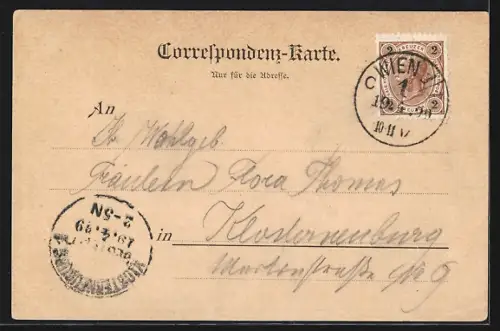 Correspondenz-Karte.
Nur für die Adresse.
2 KREUZER 2
2 2
WIEN
1
19
10-11 V
An
Wohlgeb.
Fräulein Flora Thomas
in Klosterneuburg
Martinstraße 9
KLOSTERNEUBURG
19.4.99
2-5N